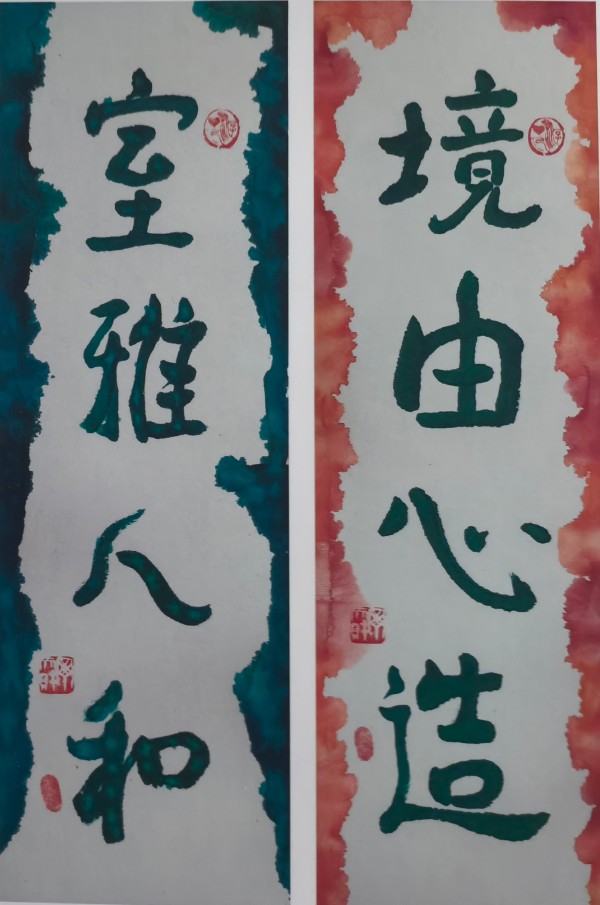 境由心造
室雅人和